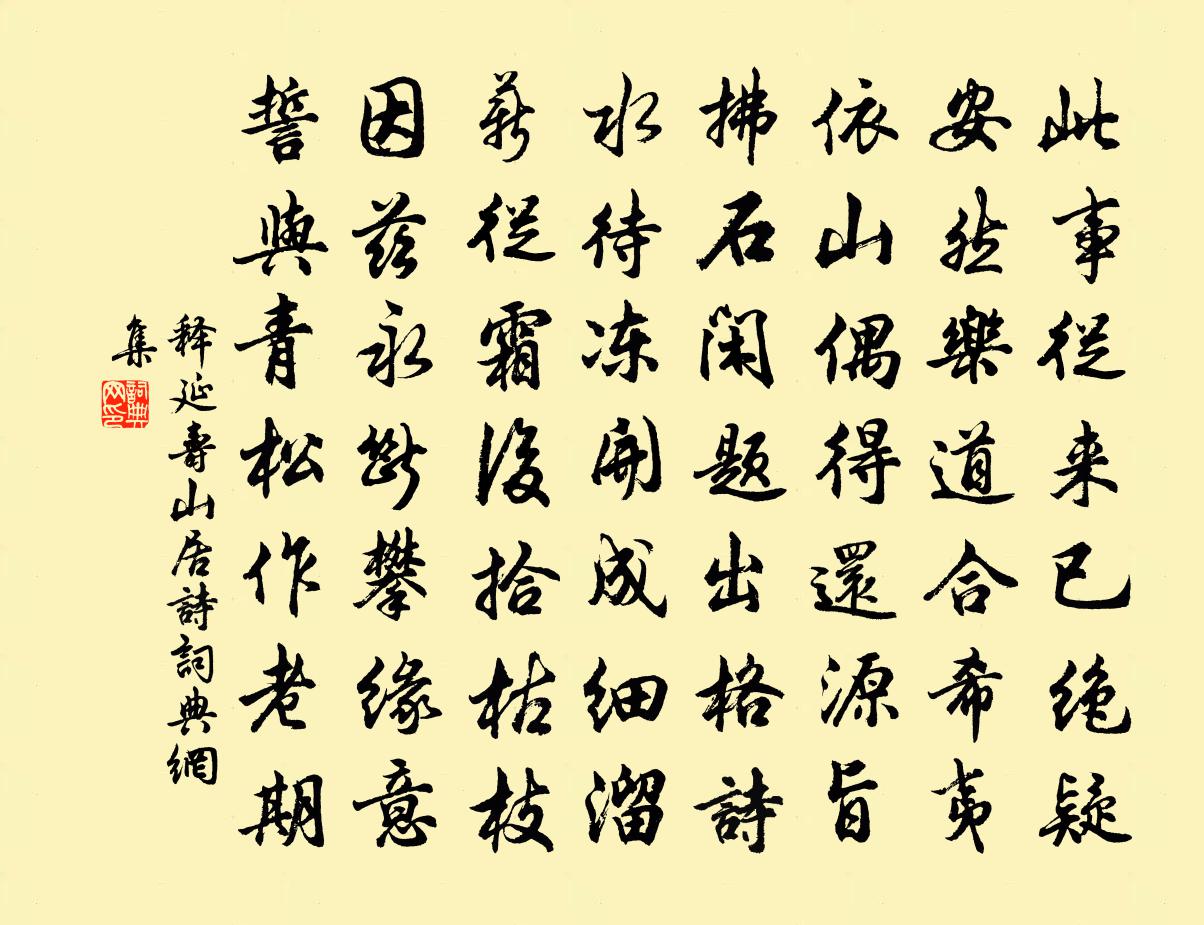 此事從来已绝疑
安然樂道合希夷
依山偶得還源旨
拂石闲题出格詩
水待冻開成细溜
薪從霜後拾枯枝
因兹永断攀缘意
誓與青松作老期
释延壽山居詩詞典網
集
詞典
网印